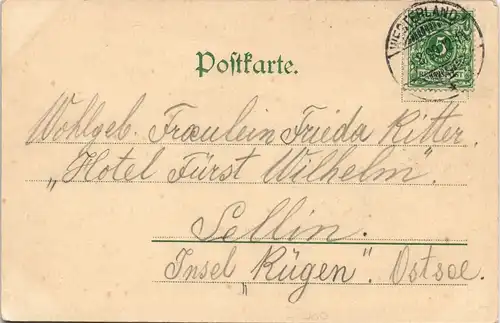 WESTERLAND
5
Postkarte.
Wohlgeb. Fraulein Frieda Ritter.
„Hotel Fürst Wilhelm".
Sellin.
Insel „Rügen". Ostsee.